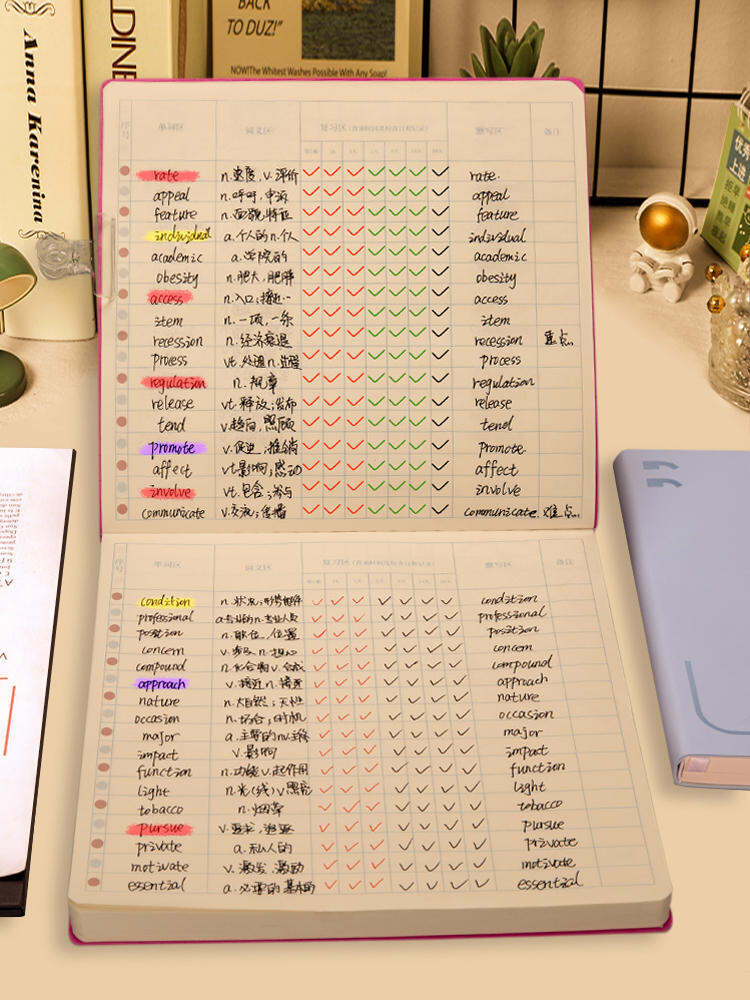 Anna Karenina
BACK
TO DUZ!"
NOW! The Whitest Washes Possible With Any Soap!
单词区 词义区 复习区 默写区 备注
rate n.速度,v.评价 rate.
appeal n.呼吁,申诉 appeal
feature n.面貌,特征 feature
individual a.个人的n.个人 individual
academic a.学院的 academic
obesity n.肥大,肥胖 obesity
access n.入口;接近 access
item n.一项,一条 item
recession n.经济衰退 recession 重点
process vt.处理n. process
regulation n.规章 regulation
release vt.释放;发布 release
tend v.趋向,照顾 tend
promote v.促进,推销 promote
affect vt.影响;感动 affect
involve vt.包含;参与 involve
communicate v.交流;传播 communicate 难点
单词区 词义区 复习区 默写区 备注
condition n.状况; condition
professional a.专业的n.专业人员 professional
position n.职位,位置 position
concern v.参与n.担心 concern
compound n.化合物v.合成 compound
approach v.接近n.接近 approach
nature n.大自然;天性 nature
occasion n.场合;时机 occasion
major a.主要的n.主修 major
impact v.影响 impact
function n.功能v.起作用 function
light n.光(线)v.照亮 light
tobacco n.烟草 tobacco
pursue v.追求,追逐 pursue
private a.私人的 private
motivate v.激发,激励 motivate
essential a.必要的 基本的 essential